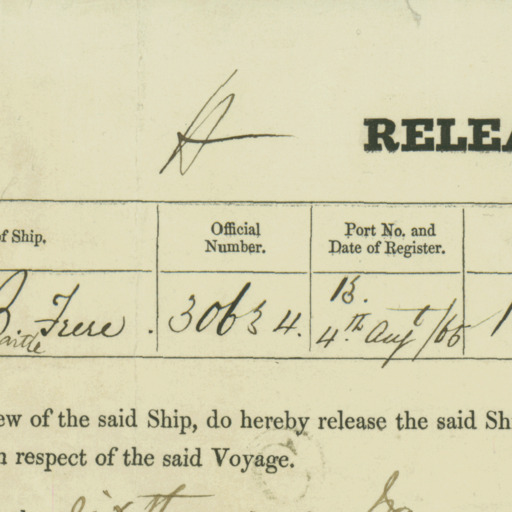 A
RELEA
of Ship.
Official
Number.
Port No. and
Date of Register.
B. Frere.
artle
30634.
13.
4th Augt/65
1
ew of the said Ship, do hereby release the said Sh
n respect of the said Voyage.